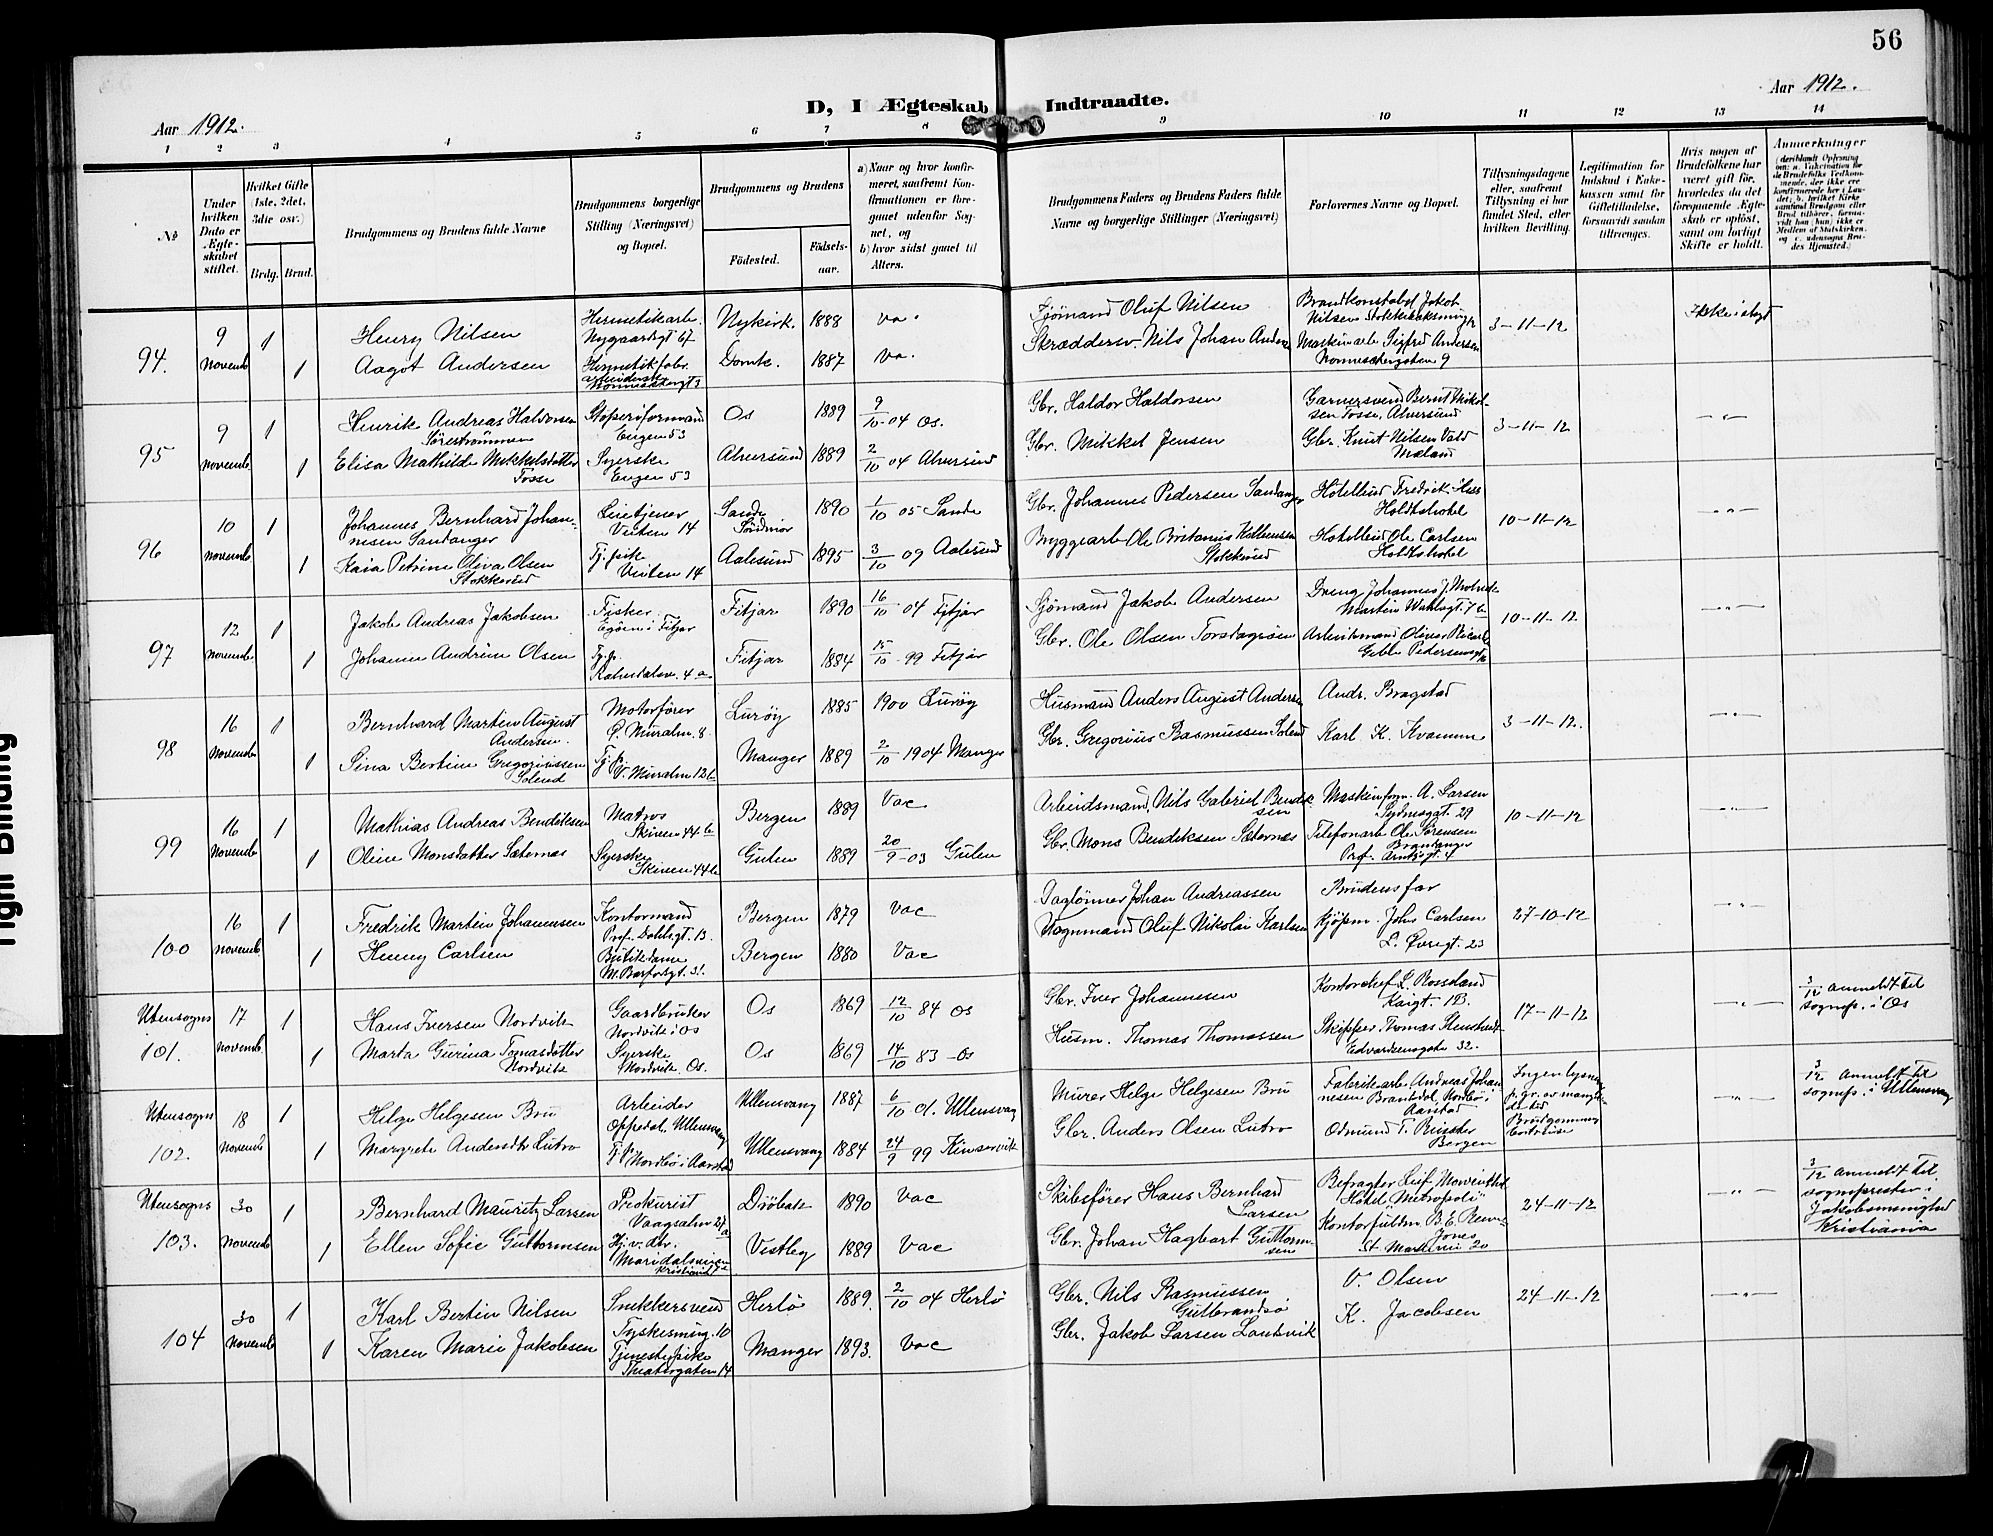 56
Aar 1912.
D, I Ægteskab Indtraadte.
Aar 1912.
1 2 3 4 5 6 7 8 9 10 11 12 13 14
No
Under hvilken Dato er Ægteskabet stiftet.
Hvilket Gifte (1ste, 2det, 3die osv.)
Brdg. Brud.
Brudgommens og Brudens fulde Navne
Brudgommens borgerlige Stilling (Næringsvei) og Bopæl.
Brudgommens og Brudens
Födested.
Födselsaar.
a) Naar og hvor konfirmeret, saafremt Konfirmationen er foregaaet udenfor Sognet, og
b) hvor sidst gaaet til Alters.
Brudgommens Faders og Brudens Faders fulde Navne og borgerlige Stillinger (Næringsvei)
Forlovernes Navne og Bopæl.
Tillysningsdagene eller, saafremt Tillysning ei har fundet Sted, efter hvilken Bevilling.
Legitimation for Indskud i Enkekassen samt for Giftetilladelse, forsaavidt saadan tiltrænges.
Hvis nogen af Brudefolkene har været gift för, hvorledes da det foregaaende Ægteskab er oplöst, samt om lovligt Skifte er holdt.
Anmærkninger
94. 9 Novemb 1 Henry Nilsen Hermetikarb. Nygaardsgt 67 Nykirk. 1888 vac Sjömand Oluf Nilsen Brandkonstabel Jakob Nilsen 3-11-12 Ikke i slegt
1 Aagot Andersen Hermetikfabr. arbeiderske 3 Domk. 1887 vac Skræddersv. Nils Johan Andersen Maskinarb Sigfred Andersen Nonnesætergaten 9
95 9 Novemb. 1 Henrik Andreas Haldorsen Sörestrømmen Stoperiformand Engen 53 Os 1889 9/10 04 Os. Gbr. Haldor Haldorsen Garversvend Bernt Mikkelsen Tosse, Alversund 3-11-12 - " -
1 Elisa Mathilde Mikkelsdatter Tosse Syerske Engen 53 Alversund 1889 2/10 04 Alversund Gbr. Mikkel Jensen Gbr. Knut Nilsen Mæland
96 10 Novemb 1 Johannes Bernhard Johannesen Sandanger Leietjener Veiten 14 Sande Söndmör 1890 1/10 05 Sande Gbr. Johannes Pedersen Sandanger Hotelbud Fredrik Holdtshotel 10-11-12 - " -
1 Kaia Petrine Oliva Olsen Stokkesund Tj. pike Veiten 14 Aalesund 1895 3/10 09 Aalesund Bryggearb Ole Britanius Stokkesund Hotelbud Ole Carlsen Holdtshotel
97 12 Novemb. 1 Jakob Andreas Jakobsen Fisker. Egöen i Fitjar Fitjar 1890 16/10 04 Fitjar Sjömand Jakob Andersen Dreng Johannes J. Martin Wahlsgt. 7b 10-11-12 - " -
1 Johanne Andrine Olsen Tj. p. Kalvedalsv. 4a Fitjar 1884 15/10 99 Fitjar Gbr. Ole Olsen Torsdagsöen Arbeidsmand Oliver Geble Pedersensgt
98 16 Novemb 1 Bernhard Martin August Andersen. Motorfører Ö. Muralm. 8 Luröy 1885 1900 Luröy Husmand Anders August Andersen Andr. Bragstad 3-11-12. - " -
1 Sina Bertine Gregoriussen Solend Tj. p. V. Muralm 12b Manger 1889 2/10 1904 Manger Gbr. Gregorius Rasmussen Solend Karl K. Kvamme
99 16 Novemb 1 Mathias Andreas Bendiksen Matros Skiven 44b Bergen 1889 Vac Arbeidsmand Nils Gabriel Bendiksen Maskinform. A. Larsen Sydnesgt. 29 10-11-12 - " -
1 Oline Monsdatter Sæternæs Syerske Skiven 44b Gulen 1889 20/9 03 Gulen Gbr. Mons Bendiksen Sæternæs Telefonarb Ole Sörensen Brandanger Prof. 4
100 16 Novemb 1 Fredrik Martin Johannesen Kontormand Prof. Dahlsgt. 13. Bergen 1879 Vac Daglønner Johan Andreassen Brudens far 27-10-12 - " -
1 Henny Carlsen Butikdame M. Barfodsgt. 31. Bergen 1880 Vac Vognmand Oluf Nikolai Karlsen Kjöpm. John Carlsen L. Övregt. 23
Utensogns 101. 17 Novemb. 1 Hans Iversen Nordvik Gaardbruker Nordvik i Os Os 1869 12/10 84 Os Gbr. Iver Johannesen Kontorchef L. Rossland Kaigt. 1B. 17-11-12 - " - 3/12 anmeldt til sognep. i Os
1 Marta Gurina Tomasdatter Nordvik Syerske Nordvik. Os. Os 1869 14/10 83 - Os Husm. Thomas Thomassen Skipper Thomas Edvardsensgate 32.
Utensogns 102. 18 Novemb 1 Helge Helgesen Bru Arbeider Oppedal. Ullensvang Ullensvang 1887 6/10 01. Ullensvang Murer Helge Helgesen Bru Fabrikarb. Andreas Johannesen Aarstad Ingen lysning p. gr. av mangl. tid Brudgommens - " - 3/12 anmeldt til sognep. i Ullensvang
1 Margrete Andersdtr Lutro T. p. Nordbø i Aarstad Ullensvang 1884 24/9 99 Kinservik Gbr. Anders Olsen Lutro Odmund T. Bergen
Utensogns 103. 30 Novemb. 1 Bernhard Mauritz Larsen Prokurist Vaagsalm 27a Dröbak 1890 Vac Skibsfører Hans Bernhard Larsen Befragter Leif Hotel Metropole 24-11-12 - " - 3/12 anmeldt til sogneprester i Jakobsmenighed Kristiania
1 Ellen Sofie Guttormsen Hj. v. dtr. Maridalsveien Kristiania Vestby 1889 Vac Gbr. Johan Hagbart Guttormsen Kontorfuldm. B. E. Jones St. Markevei 20
104 30 Novemb 1 Karl Bertin Nilsen Snekkersvend Tyskesmug. 10 Herlö 1889. 2/10 04 Herlö Gbr. Nils Rasmussen Gulbrandsö V. Olsen 24-11-12 - " -
1 Karen Marie Jakobsen Tjenestepike Theatergaten 14 Manger 1893. Vac Gbr. Jakob Larsen Landsvik K. Jacobsen
Tight Binding